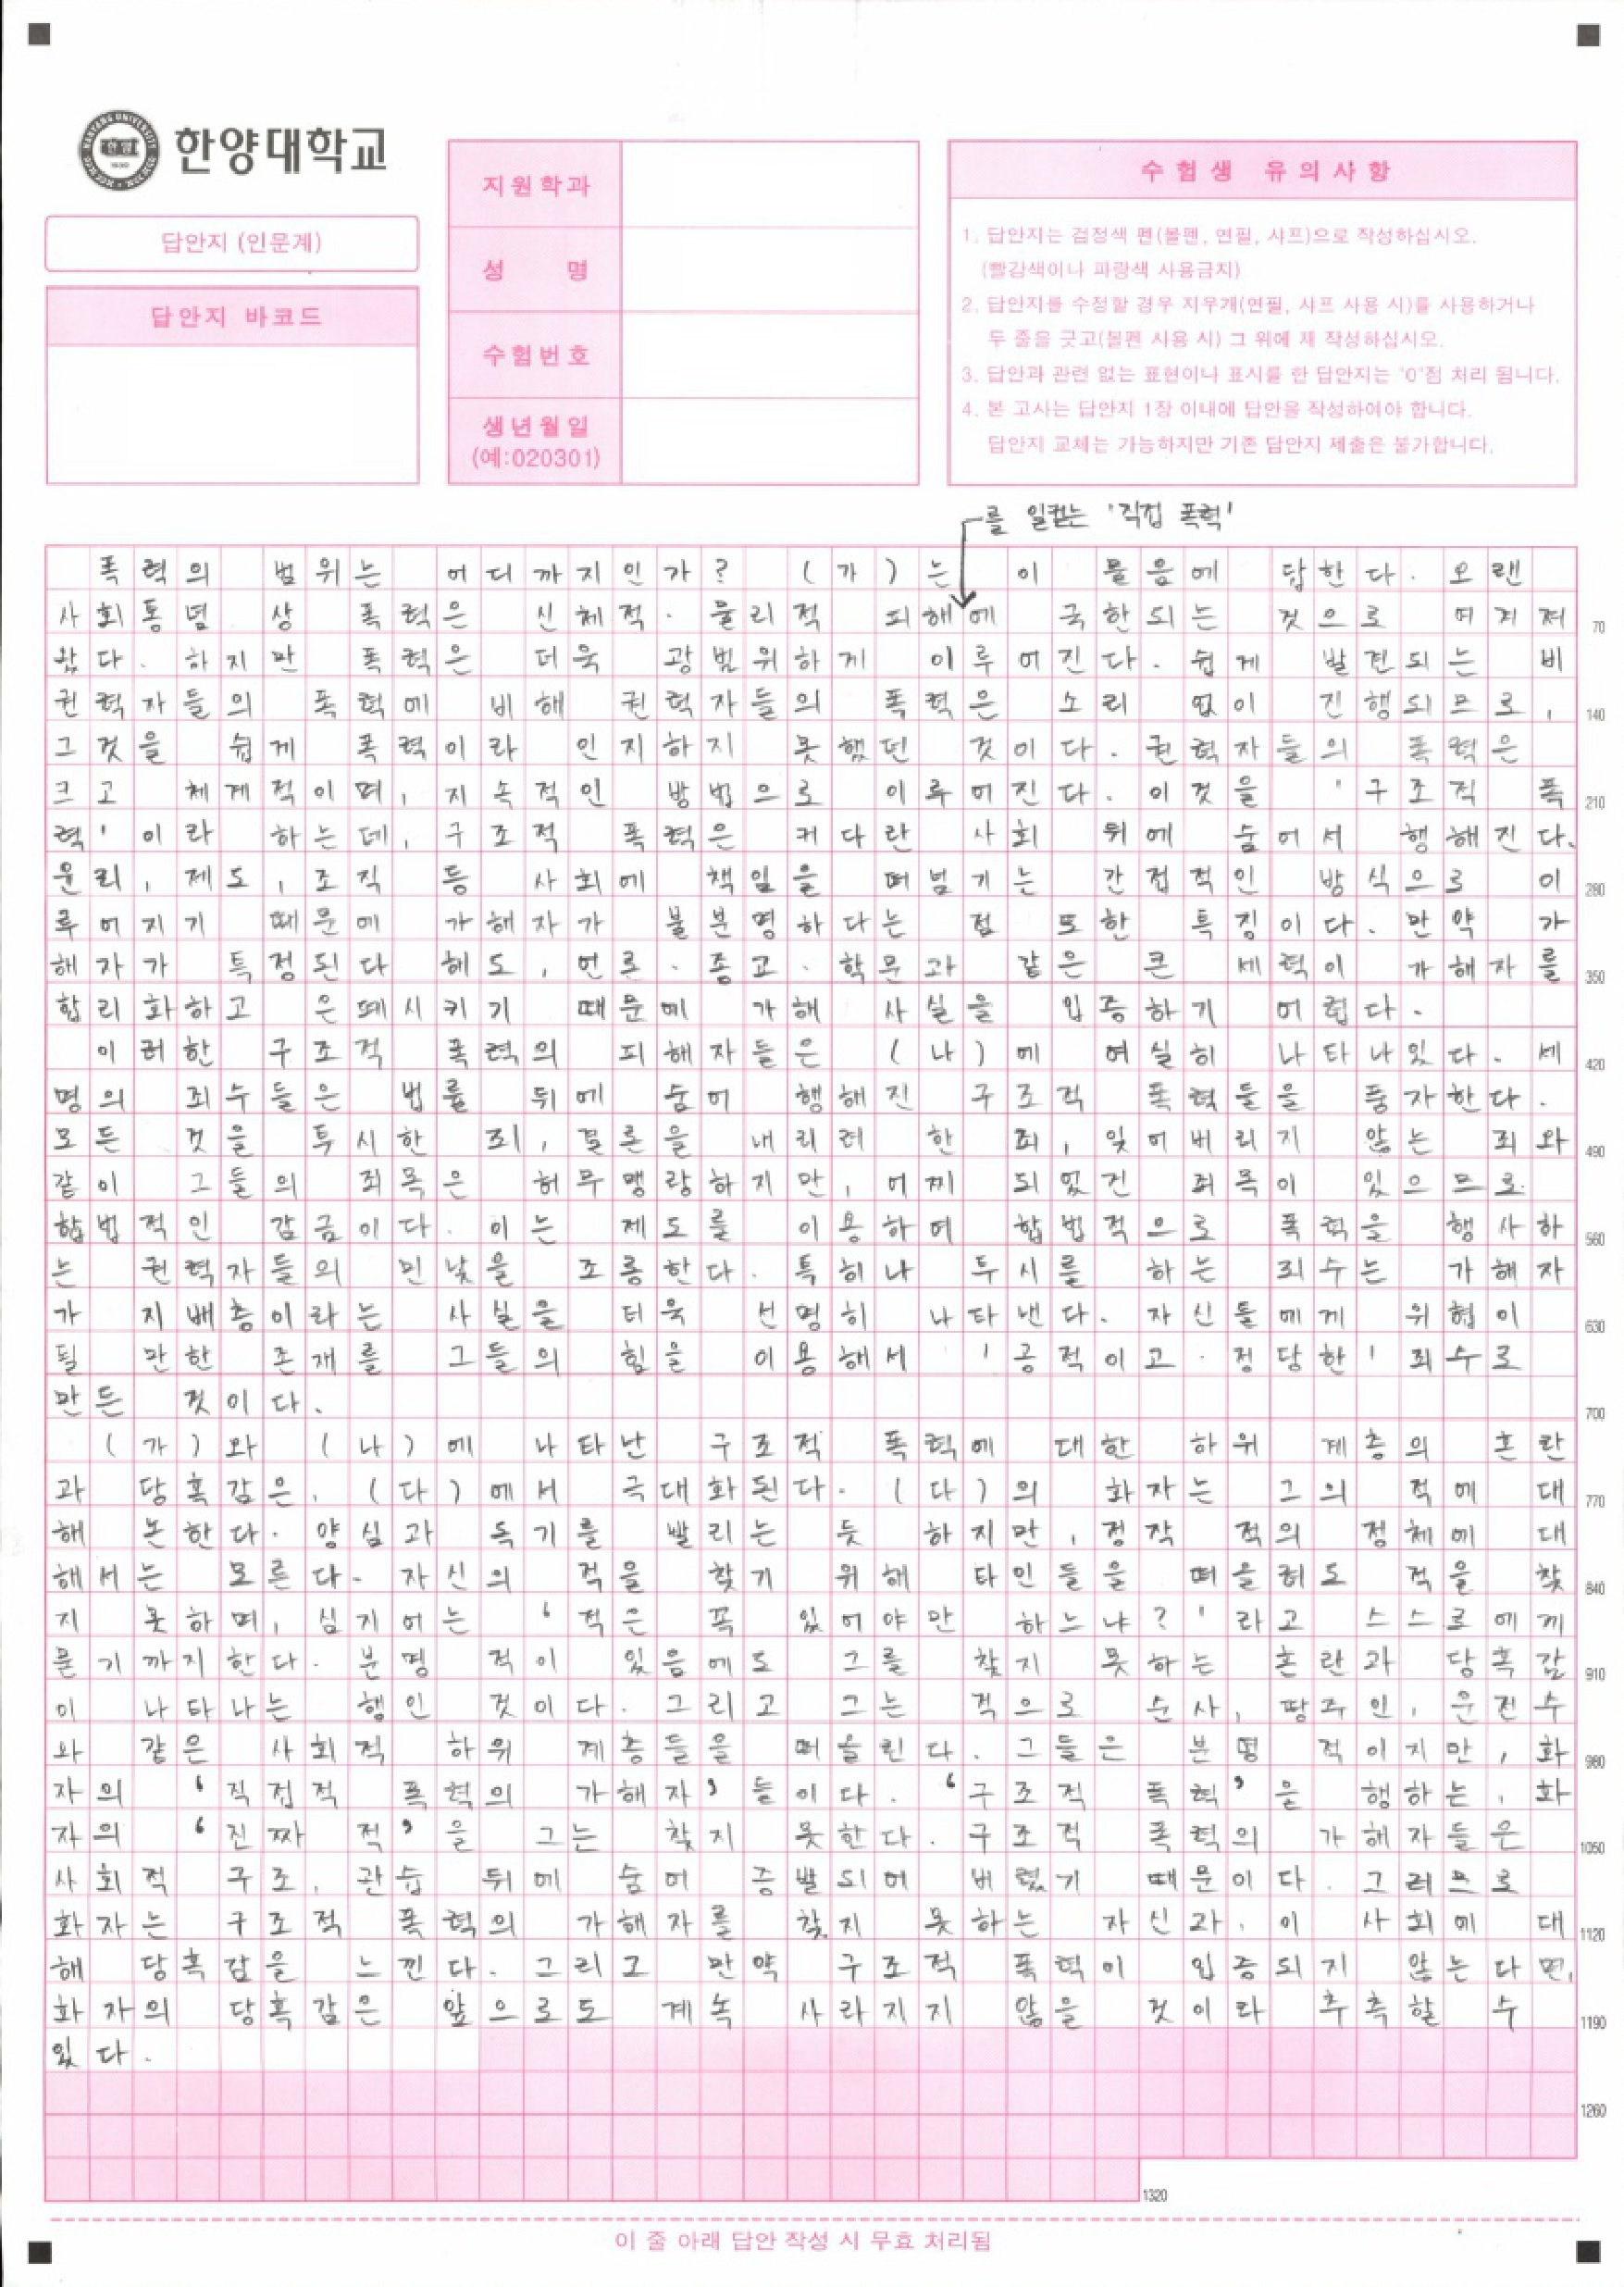 한양대학교
답안지 (인문계)
답안지 바코드
지원학과
성 명
수험번호
생년월일
(예:020301)
수험생 유의사항
1. 답안지는 검정색 펜(볼펜, 연필, 샤프)으로 작성하십시오.
(빨강색이나 파랑색 사용금지)
2. 답안지를 수정할 경우 지우개(연필, 샤프 사용 시)를 사용하거나
두 줄을 긋고(볼펜 사용 시) 그 위에 재 작성하십시오.
3. 답안과 관련 없는 표현이나 표시를 한 답안지는 "0"점 처리 됩니다.
4. 본 고사는 답안지 1장 이내에 답안을 작성하여야 합니다.
답안지 교체는 가능하지만 기존 답안지 제출은 불가합니다.
를 일컫는 '직접 폭력'
폭력의 범위는 어디까지인가? (가)는 이 물음에 답한다. 오랜
사회통념 상 폭력은 신체적·물리적 피해에 국한되는 것으로 여겨져 70
왔다. 하지만 폭력은 더욱 광범위하게 이루어진다. 쉽게 발견되는 비
권력자들의 폭력에 비해 권력자들의 폭력은 소리 없이 진행되므로, 140
그것을 쉽게 폭력이라 인지하지 못했던 것이다. 권력자들의 폭력은
크고 체계적이며, 지속적인 방법으로 이루어진다. 이것을 '구조적 폭 210
력'이라 하는데, 구조적 폭력은 커다란 사회 뒤에 숨어서 행해진다.
윤리, 제도, 조직 등 사회에 책임을 떠넘기는 간접적인 방식으로 이 280
루어지기 때문에 가해자가 불분명하다는 점 또한 특징이다. 만약 가
해자가 특정된다 해도, 언론·종교·학문과 같은 큰 세력이 가해자를 350
합리화하고 은폐시키기 때문에 가해 사실을 입증하기 어렵다.
이러한 구조적 폭력의 피해자들은 (나)에 여실히 나타나있다. 세 420
명의 죄수들은 법률 뒤에 숨어 행해진 구조적 폭력들을 풍자한다.
모든 것을 투시한 죄, 결론을 내리려 한 죄, 잊어버리지 않는 죄와 490
같이 그들의 죄목은 허무맹랑하지만, 어찌 되었건 죄목이 있으므로
합법적인 감금이다. 이는 제도를 이용하여 합법적으로 폭력을 행사하 560
는 권력자들의 민낯을 조롱한다. 특히나 투시를 하는 죄수는 가해자
가 지배층이라는 사실을 더욱 선명히 나타낸다. 자신들에게 위협이 630
될 만한 존재를 그들의 힘을 이용해서 '공적이고·정당한' 죄수로
만든 것이다. 700
(가)와 (나)에 나타난 구조적 폭력에 대한 하위 계층의 혼란
과 당혹감은, (다)에서 극대화된다. (다)의 화자는 그의 적에 대 770
해 논한다. 양심과 독기를 발리는 듯 하지만, 정작 적의 정체에 대
해서는 모른다. 자신의 적을 찾기 위해 타인들을 떠올려도 적을 찾 840
지 못하며, 심지어는 '적은 꼭 있어야만 하느냐?'라고 스스로에게
묻기까지한다. 분명 적이 있음에도 그를 찾지 못하는 혼란과 당혹감 910
이 나타나는 행인 것이다. 그리고 그는 적으로 순사, 땅주인, 운전수
와 같은 사회적 하위 계층들을 떠올린다. 그들은 분명 적이지만, 화 980
자의 '직접적 폭력의 가해자'들이다. '구조적 폭력'을 행하는, 화
자의 '진짜 적'을 그는 찾지 못한다. 구조적 폭력의 가해자들은 1050
사회적 구조, 관습 뒤에 숨어 증발되어 버렸기 때문이다. 그러므로
화자는 구조적 폭력의 가해자를 찾지 못하는 자신과, 이 사회에 대 1120
해 당혹감을 느낀다. 그리고 만약 구조적 폭력이 입증되지 않는다면,
화자의 당혹감은 앞으로도 계속 사라지지 않을 것이라 추측할 수 1190
있다.
1260
1320
이 줄 아래 답안 작성 시 무효 처리됨